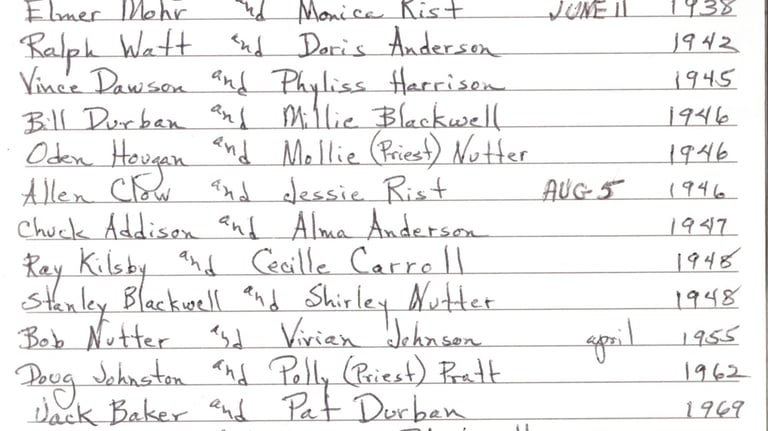 Elmer Mohr and Monica Rist JUNE 11 1938
Ralph Watt and Doris Anderson 1942
Vince Dawson and Phyliss Harrison 1945
Bill Durban and Millie Blackwell 1946
Oden Hougan and Mollie (Priest) Nutter 1946
Allen Clow and Jessie Rist AUG 5 1946
Chuck Addison and Alma Anderson 1947
Ray Kilsby and Cecille Carroll 1948
Stanley Blackwell and Shirley Nutter 1948
Bob Nutter and Vivian Johnson april 1955
Doug Johnston and Polly (Priest) Pratt 1962
Jack Baker and Pat Durban 1969